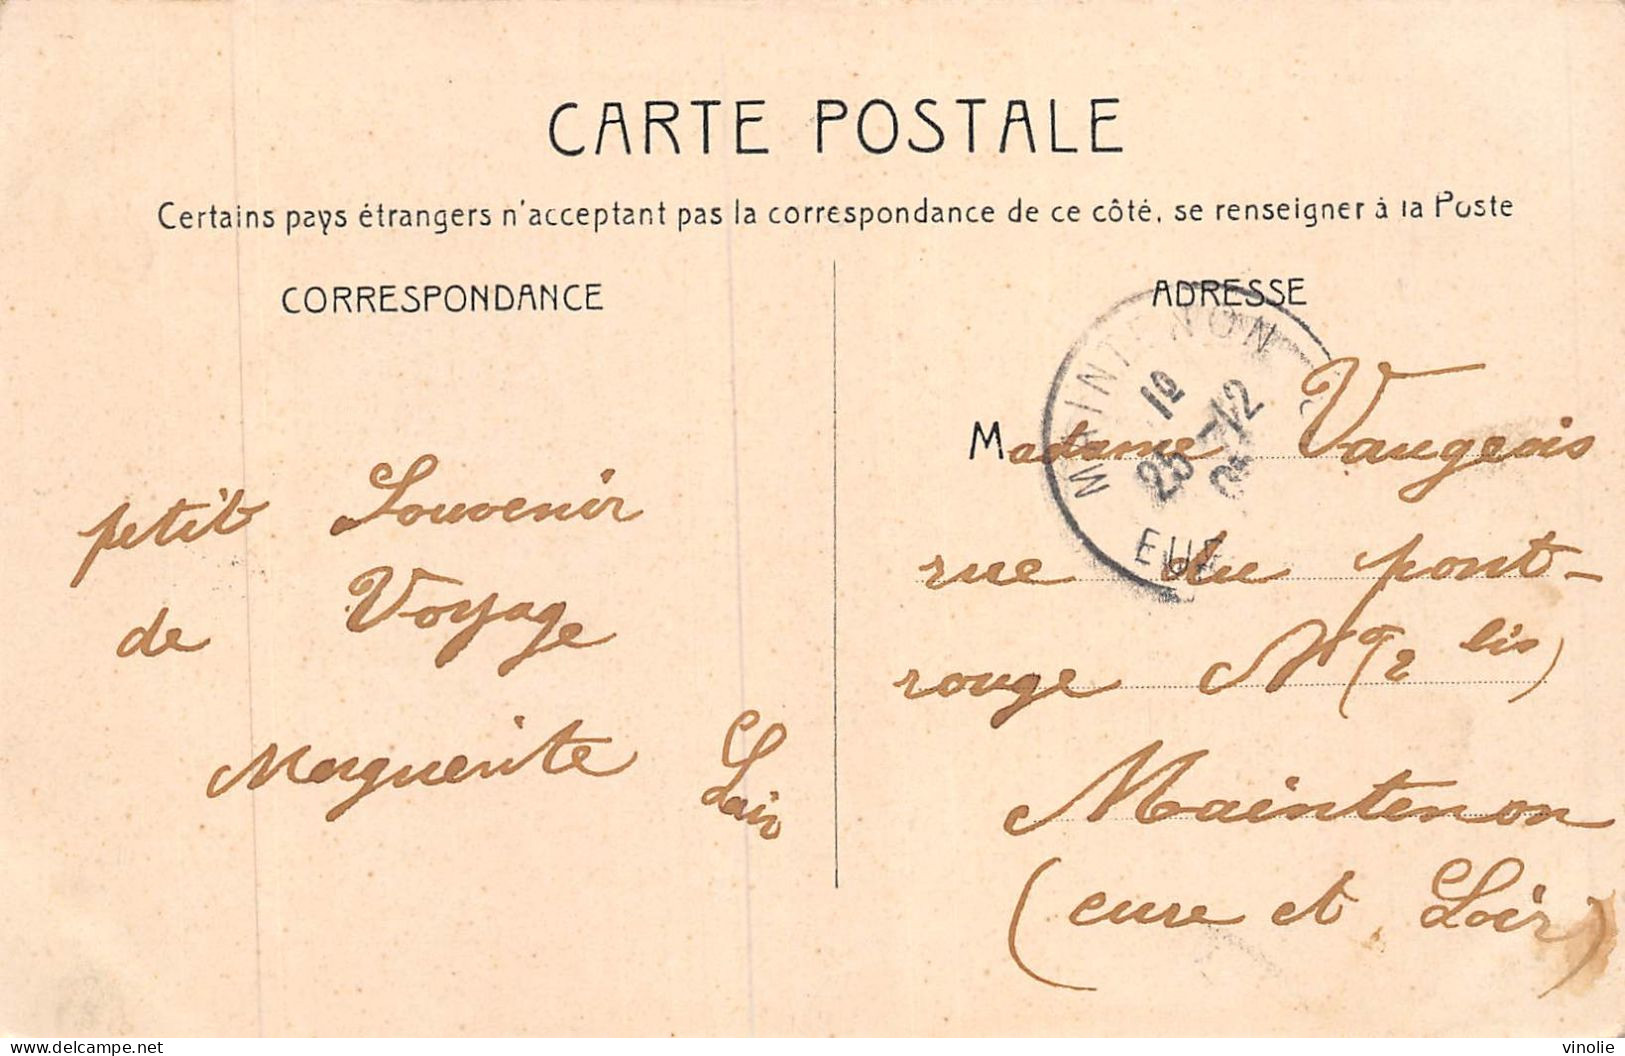 CARTE POSTALE
Certains pays étrangers n'acceptant pas la correspondance de ce côté, se renseigner à la Poste
CORRESPONDANCE
petit Souvenir
de Voyage
Marguerite
ADRESSE
MAINTENON
25 12
EURE
Madame Vaugeois
rue du pont-
rouge No (2 bis)
Maintenon
(eure et Loir)
delcampe.net
vinolie